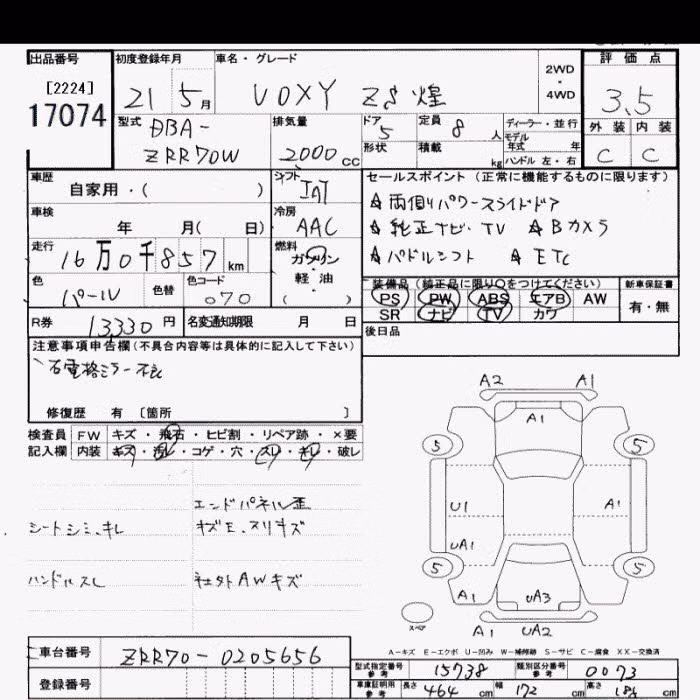 出品番号
[2224]
17074
初度登録年月
21 5月
車名・グレード
VOXY ZS 煌
2WD
・
4WD
評価点
3.5
外装 内装
C C
型式
DBA-
ZRR70W
排気量
2000cc
ドア
5
形状
定員
8人
積載
kg
ディーラー・並行
モデル
年式 年
ハンドル 左・右
車歴
自家用・( )
シフト
IAT
車検
年 月( 日)
冷房
AAC
走行
16万0千857km
燃料
ガソリン
軽・油
( )
色
パール
色替
色コード
070
R券
13330円
名変通知期限 月 日
セールスポイント (正常に機能するものに限ります)
☆両側パワースライドドア
☆純正ナビ・TV ☆Bカメラ
☆パドルシフト ☆ETC
装備品(純正品に限り〇をつけてください)
PS PW ABS エアB AW
SR ナビ TV カワ
新車保証書
有・無
後日品
注意事項申告欄(不具合内容等は具体的に記入して下さい)
右電格ミラー不良
修復歴 有 〔箇所 〕
検査員
記入欄
FW キズ・飛石・ヒビ割・リペア跡・×要
内装 キズ・汚レ・コゲ・穴・スレ・キレ・破レ
エンドパネル歪
シートシミ、キレ
キズE、スリキズ
ハンドルスレ
社外AWキズ
A2 A1
A1
5 5
U1 A1
UA1
5 5
A1 UA3
スペア
A1 UA2
A-キズ E-エクボ U-凹み W-補修跡 S-サビ C-腐食 XX-交換済
車台番号
ZRR70-0205656
登録番号
型式指定番号
参考
15738
類別区分番号
参考
0073
車庫証明用
参考
長さ 464 cm 幅 172 cm 高さ cm